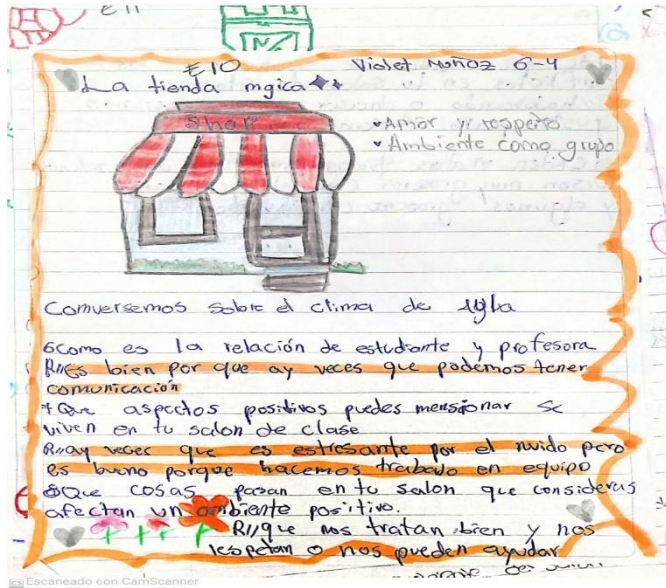 E11
E10
Violet Muñoz 6-4
La tienda mgica
Shop
Amor y respeto
Ambiente como grupo
Comversemos sobre el clima de
como es la relación de estudiante y profesora
R//Es bien por que ay veces que podemos tener
comunicación
Que aspectos positivos puedes mensionar se
viven en tu salon de clase
R//ay veces que es estresante por el ruido pero
es bueno porque hacemos trabado en equipo
Que cosas pasan en tu salon que consideras
afectan un ambiente positivo.
R//que nos tratan bien y nos
respetan o nos pueden ayudar
Escaneado con CamScanner